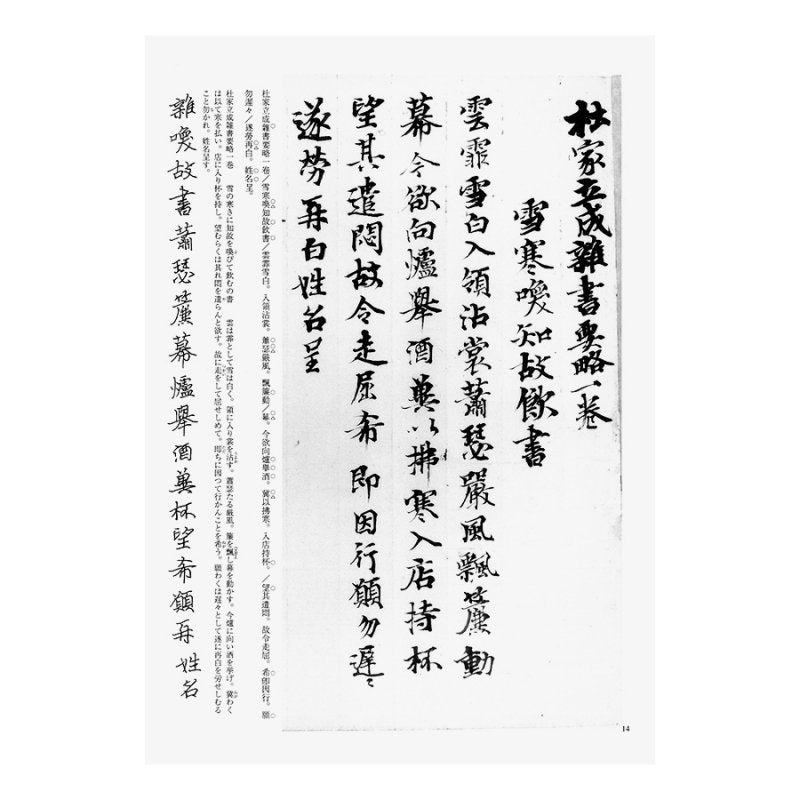 杜家立成雜書要略一卷
雪寒喚知故飲書
雲霏雪白入領沾裳蕭瑟嚴風飄簾動
幕今欲向爐舉酒冀以拂寒入店持杯
望其遣悶故令走屈希即因行願勿遲〻
遂勞再白姓名呈
杜家立成雑書要略一巻／雪寒喚知故飲書／雲霏雪白。入領沾裳。蕭瑟厳風。飄簾動／幕。今欲向爐挙酒。冀以拂寒。入店持杯。／望其遣悶。故令走屈。希即因行。願
勿遅々／遂労再白。姓名呈。
杜家立成雑書要略一巻　雪の寒きに知故を喚びて飲むの書　雲は霏として雪は白く。領に入り裳を沾す。蕭瑟たる厳風。簾を飄し幕を動かす。今爐に向い酒を挙げ。冀わく
は以て寒を払い。店に入り杯を持し。望むらくは其れ悶を遣らんと欲す。故に走をして屈せしめて。即ちに因つて行かんことを希う。願わくは遅々として遂に再白を労せしむる
こと勿かれ。姓名呈す。
雜喚故書蕭瑟簾幕爐舉酒冀杯望希願再 姓名
14